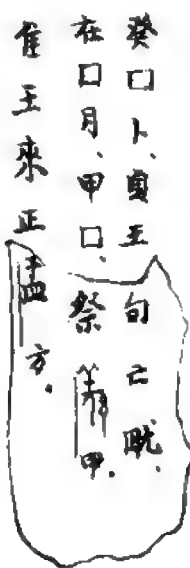 癸囗卜、貞王旬亡畎、
在囗月、甲囗、祭甲、
隹王來正盂方、